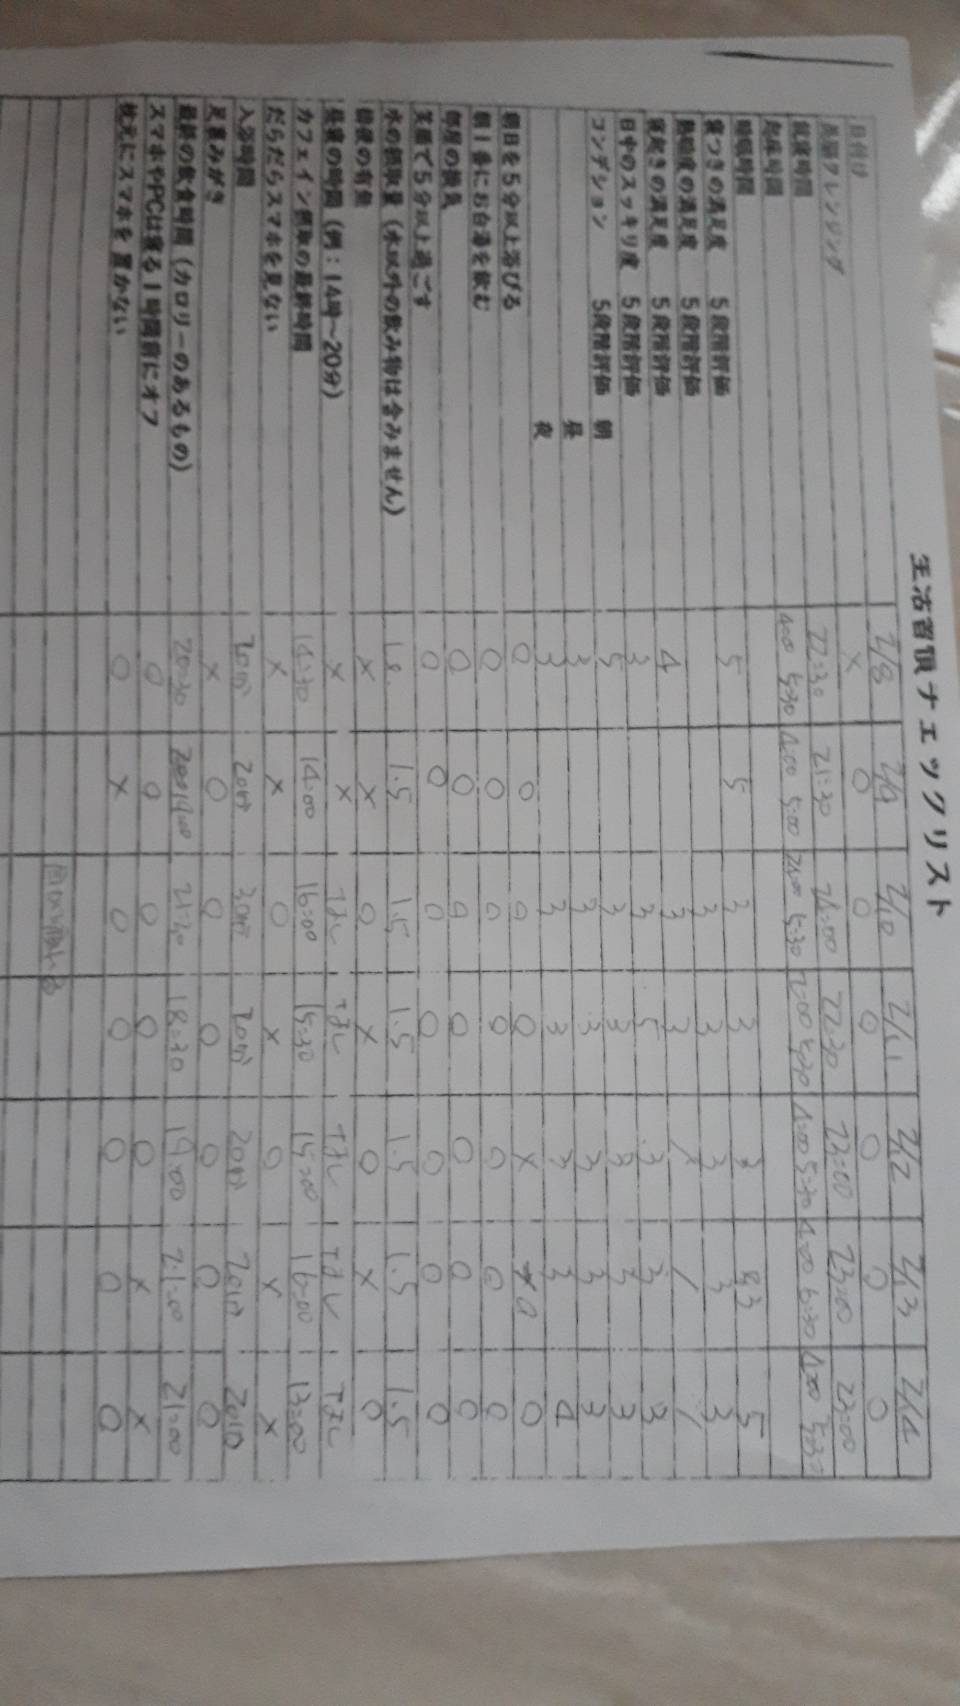 生活習慣チェックリスト
日付け 2/8 2/9 2/10 2/11 2/12 2/13 2/14
鼻腔クレンジング × ○ ○ ○ ○ ○ ○
就寝時間 22:30 21:30 22:30 23:00 23:00 23:00
起床時間 4:00 5:30 4:00 5:00 5:30 5:30 4:00 5:30 4:00 5:30 4:00 5:30
睡眠時間
寝つきの満足度 5段階評価 5 5 3 3 3 3 5
熟睡度の満足度 5段階評価 3 3 3 3 3
寝起きの満足度 5段階評価 4 3 3
日中のスッキリ度 5段階評価 3 3 5 3 3 3
コンディション 5段階評価 朝 5 3 3 3 3 3
昼 3 3 3 3 3 3
夜 3 3 3 3 3 4
朝日を5分以上浴びる ○ ○ ○ ○ × ○ ○
朝1番にお白湯を飲む ○ ○ ○ ○ ○ ○ ○
部屋の換気 ○ ○ ○ ○ ○ ○ ○
笑顔で5分以上過ごす ○ ○ ○ ○ ○ ○ ○
水の摂取量（水以外の飲み物は含みません） 1.5 1.5 1.5 1.5 1.5 1.5
排便の有無 × × ○ × ○ × ○
昼寝の時間（例：14時〜20分） × × なし なし なし なし なし
カフェイン摂取の最終時間 14:30 14:00 16:00 15:30 15:00 16:00 13:00
だらだらスマホを見ない × × ○ × ○ × ×
入浴時間 20分 20分 30分 20分 20分 20分 20分
足裏みがき × ○ ○ ○ ○ ○ ○
最終の飲食時間（カロリーのあるもの） 20:30 21:30 18:30 19:00 21:00 21:00
スマホやPCは寝る1時間前にオフ ○ ○ ○ ○ ○ × ×
枕元にスマホを置かない ○ × ○ ○ ○ ○ ○